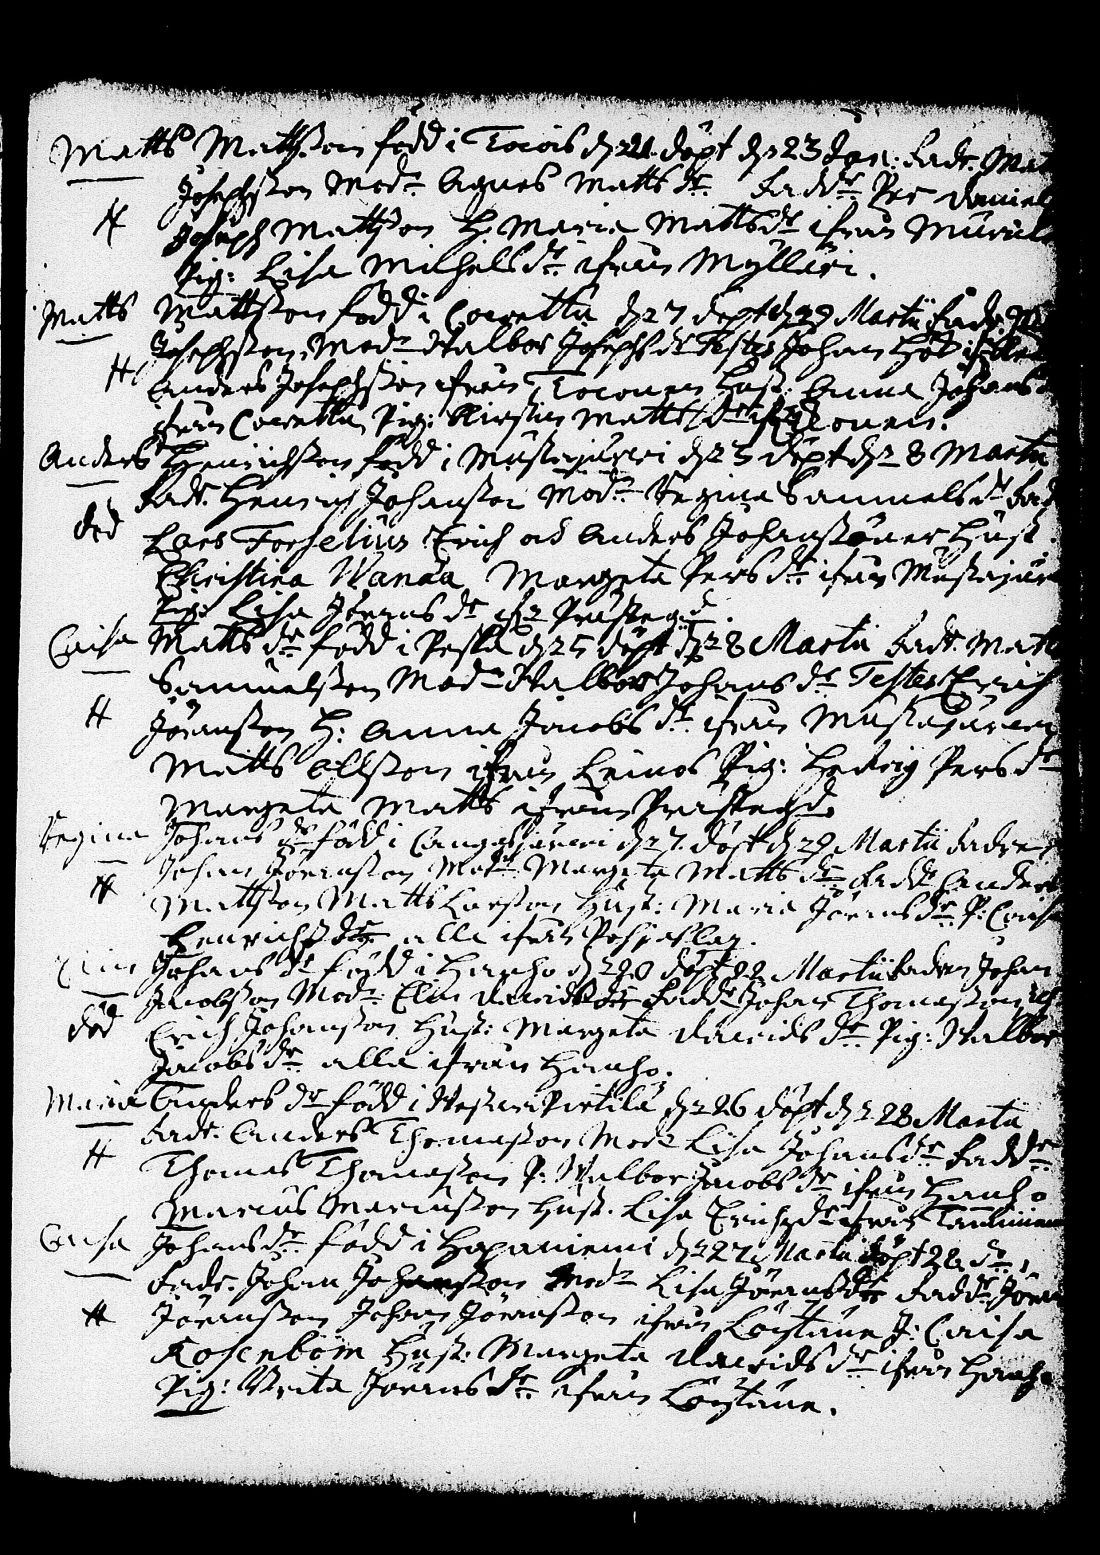 Matts Mattsson född i Tocois d. 21 döpt d. 23 Jan: Fadr. Mat
Josephsson Modr Agnes Matts dr Faddr Per Daniel
# Joseph Mattsson H. Maria Mattsdr ifrån
Pig: Lisa Michelsdr ifrån Mylläri.
Matts Mattsson född i Couretta d. 27 döpt d. 29 Martii Fadr.
Josephsson, Modr Walbor Josephsdr Testes Johan
# Anders Josephsson ifrån Hust: Anna Johans
ifrån Couretta Pig: Kirstin Matts dr
Anders Henrichsson född i Mustajärvi d. 5 döpt d. 8 Martii
Fadr. Henrich Johansson Modr Regina Samuels dr Fad
död Lars Forselius Erich och Anders Johanssöner Hust.
Christina Wanaa Margeta Pers dr ifrån Mustajär
Pig: Lisa Jörans dr ifr Prästegd.
Caisa Matts dr född i Peska d. 25 döpt d. 28 Martii Fadr. Matts
Samuelsson Modr Walbor Johans dr Testes Erich
# Jöransson H: Anna Jacobs dr ifrån Mustajärvi
Matts Ollsson ifrån Leinos Pig: Hedvig Pers dr
Margeta Matts ifrån Prästegd.
Regina Johans dr född i Cangasjärvi d. 27 döpt d. 29 Martii Fadr
Johan Jöransson Modr Margeta Matts dr Faddr Anders
# Mattsson Matts Larsson Hust: Maria Jörans dr P: Caisa
Henrichs dr alla ifrån Pohjaslax.
Elin Johans dr född i Hanho d. 20 döpt 22 Martii Fadren Johan
Jacobsson Modr: Elin Davids dr Faddr Johan Thomasson
död Erich Johansson Hust: Margeta Davids dr Pig: Walbor
Jacobs dr alla ifrån Hanho.
Maria Anders dr född i Westari Pirtilä d. 26 döpt d. 28 Martii
Fadr. Anders Thomasson Modr Lisa Johans dr Faddr
# Thomas Thomasson P: Walbor Jacobs dr ifrån Hanho
Marcus Marcusson Hust. Lisa Erichs dr ifrån
Caisa Johans dr född i Hapaniemi d. 27 Martii döpt 28 do,
Fadr. Johan Johansson Modr Lisa Jörans dr Faddr Jöran
# Jöransson Johan Jöransson ifrån Löytäne J: Caisa
Rosenbom Hust: Margeta Davids dr ifrån Hanho
Pig: Brita Jörans dr ifrån Löytäne.